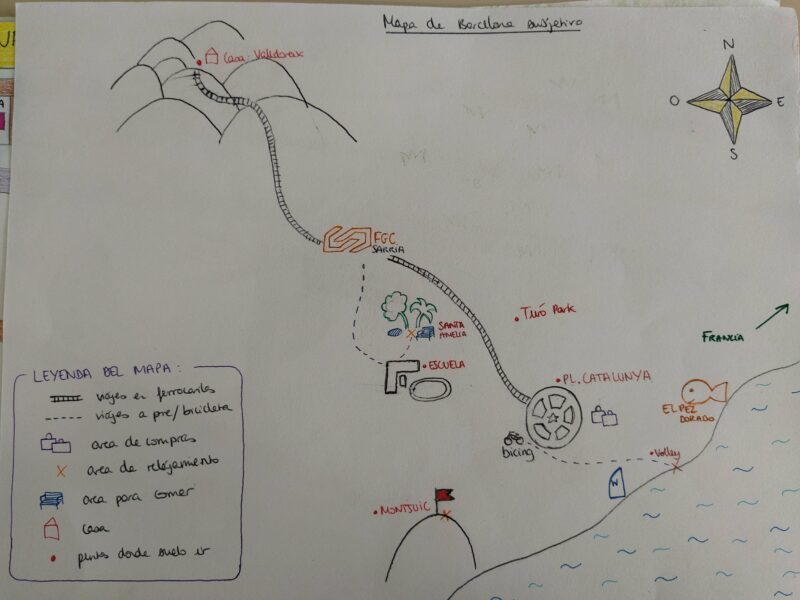 Mapa de Barcelona subjetivo
Casa: Vallidoreix
N
O
E
S
FGC
SARRIA
SANTA
AMELIA
ESCUELA
Turó Park
FRANCIA
PL. CATALUNYA
EL PEZ
DORADO
bicing
Volley
MONTJUIC
LEYENDA DEL MAPA:
viajes en ferrocarriles
viajes a pie/bicicleta
area de compras
area de relajamiento
area para comer
casa
puntos donde suelo ir